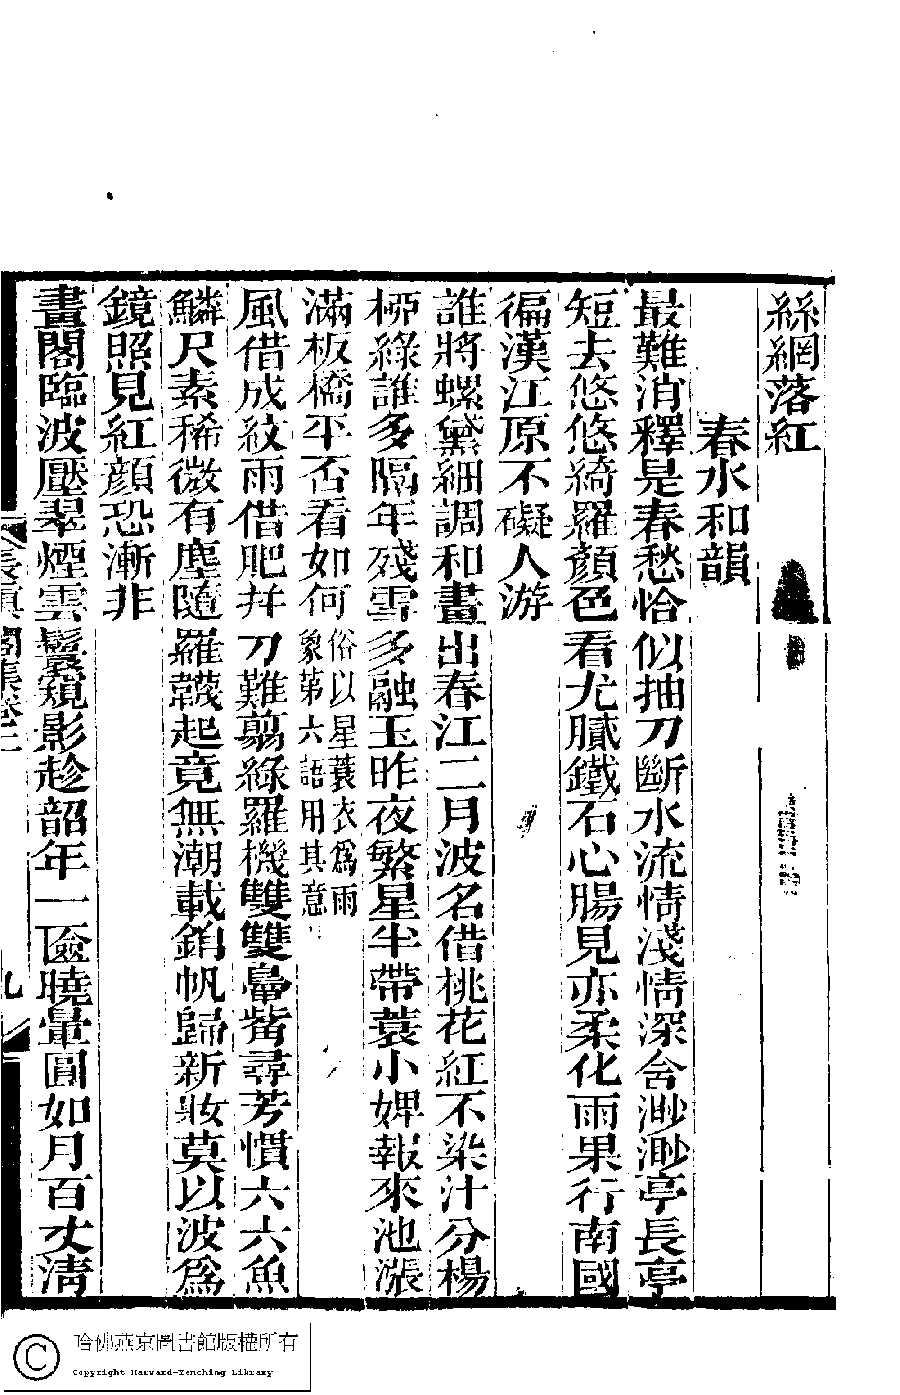 絲網落紅
春水和韻
最難消釋是春愁恰似抽刀斷水流情淺情深含渺渺亭長亭
短去悠悠綺羅顏色看尤膩鐵石心腸見亦柔化雨果行南國
徧漢江原不礙人游
誰將螺黛細調和畫出春江二月波名借桃花紅不染汁分楊
桺綠誰多隔年殘雪多融玉昨夜繁星半帶蓑小婢報來池漲
滿板橋平否看如何俗以星蓑衣爲雨
象第六語用其意
風借成紋雨借肥幷刀難翦綠羅機雙雙鼻觜尋芳慣六六魚
鱗尺素稀微有塵隨羅韈起竟無潮載錦帆歸新妝莫以波爲
鏡照見紅顏恐漸非
畫閣臨波壓翠煙雲鬟窺影趁韶年一奩曉暈圓如月百丈淸
長眞閣集卷三
九
哈佛燕京圖書館版權所有
Copyright Harvard-Yenching Library